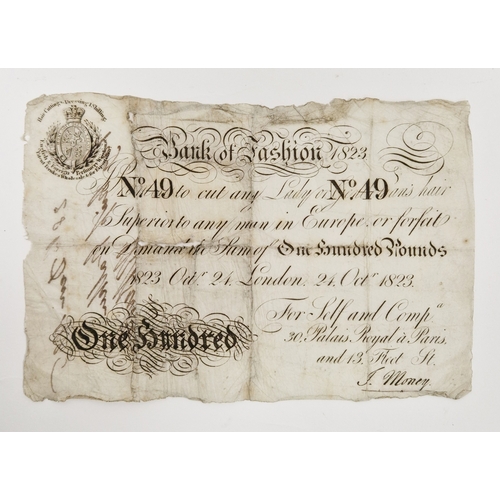 Hair Cutting & Dressing 1 Shilling
Bank of Fashion 1823
No. 49 to cut any Lady or No. 49 man's hair
Superior to any man in Europe, or forfeit
on Demand the Sum of One Hundred Pounds
1823 Octr. 24, London, 24, Octr. 1823.
One Hundred
For Self and Compa.
30, Palais Royal à Paris,
and 13, Fleet St.
J. Money